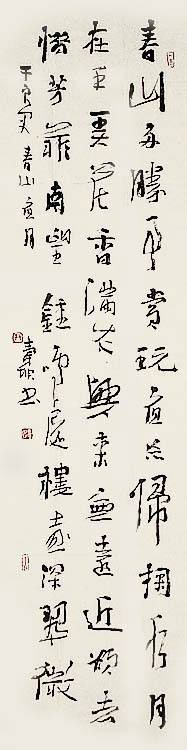 春山多勝事賞玩夜忘歸掬水月
在手弄花香滿衣興來無遠近欲去
惜芳菲南望鐘鳴處樓臺深翠微
于良史春山夜月
书